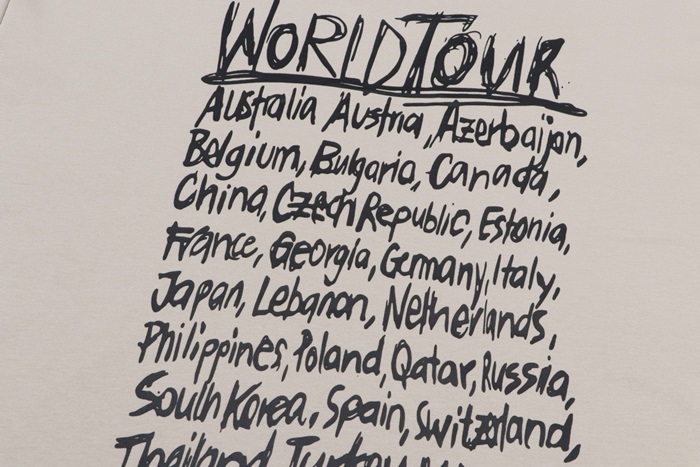 WORLD TOUR
Australia Austria, Azerbaijan,
Belgium, Bulgaria, Canada,
China, Czech Republic, Estonia,
France, Georgia, Germany, Italy,
Japan, Lebanon, Netherlands,
Philippines, Poland, Qatar, Russia,
South Korea, Spain, Switzerland,
Thailand Turkey